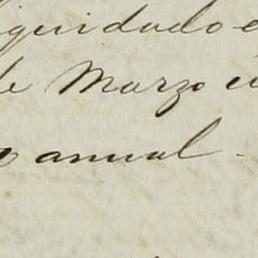 liquidado
de Marzo
anual.